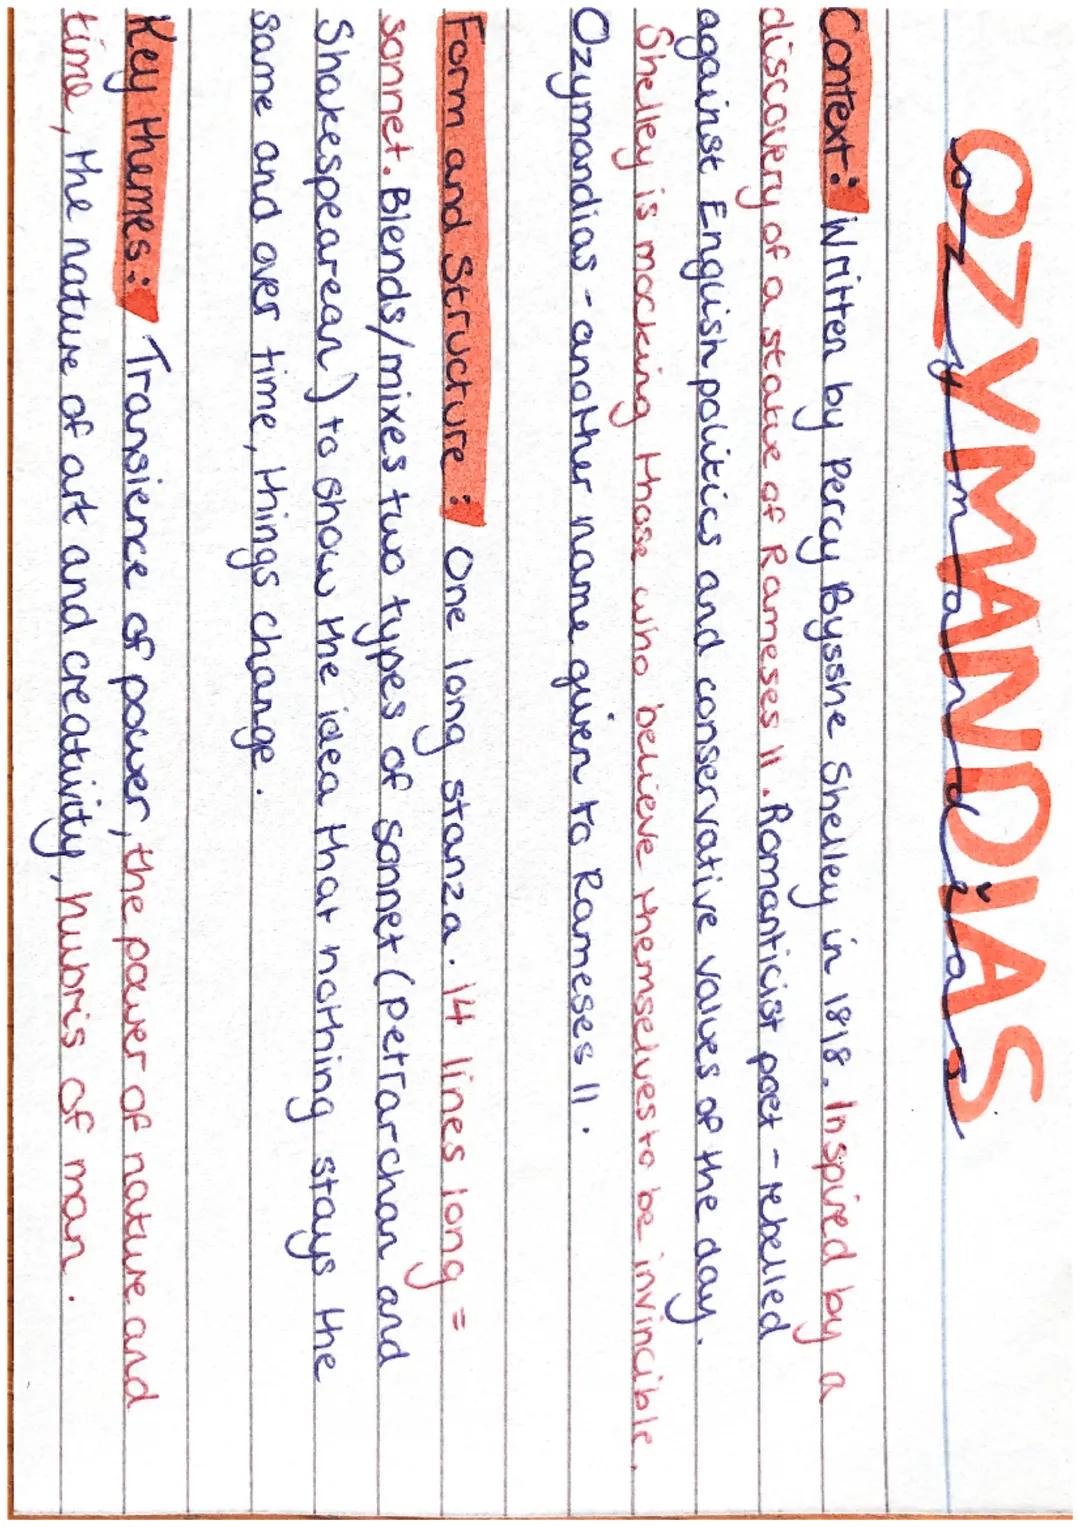 OZYMANDIAS
ozymandias
Context: Written by Percy Bysshe Shelley in 1818. Inspired by a
discovery of a statue of Rameses II. Romanticist poet - rebelled
against Enguish politics and conservative values of the day.
Shelley is mocking those who believe themselves to be invincible.
Ozymandias - another name given to Rameses II.
Form and Structure: One long stanza. 14 lines long =
sonnet. Blends/mixes two types of sonnet (petrarchan and
Shakespearean) to show the idea that nothing stays the
same and over time, things change.
Key themes: Transience of power, the power of nature and
time, the nature of art and creativity, hubris of man.